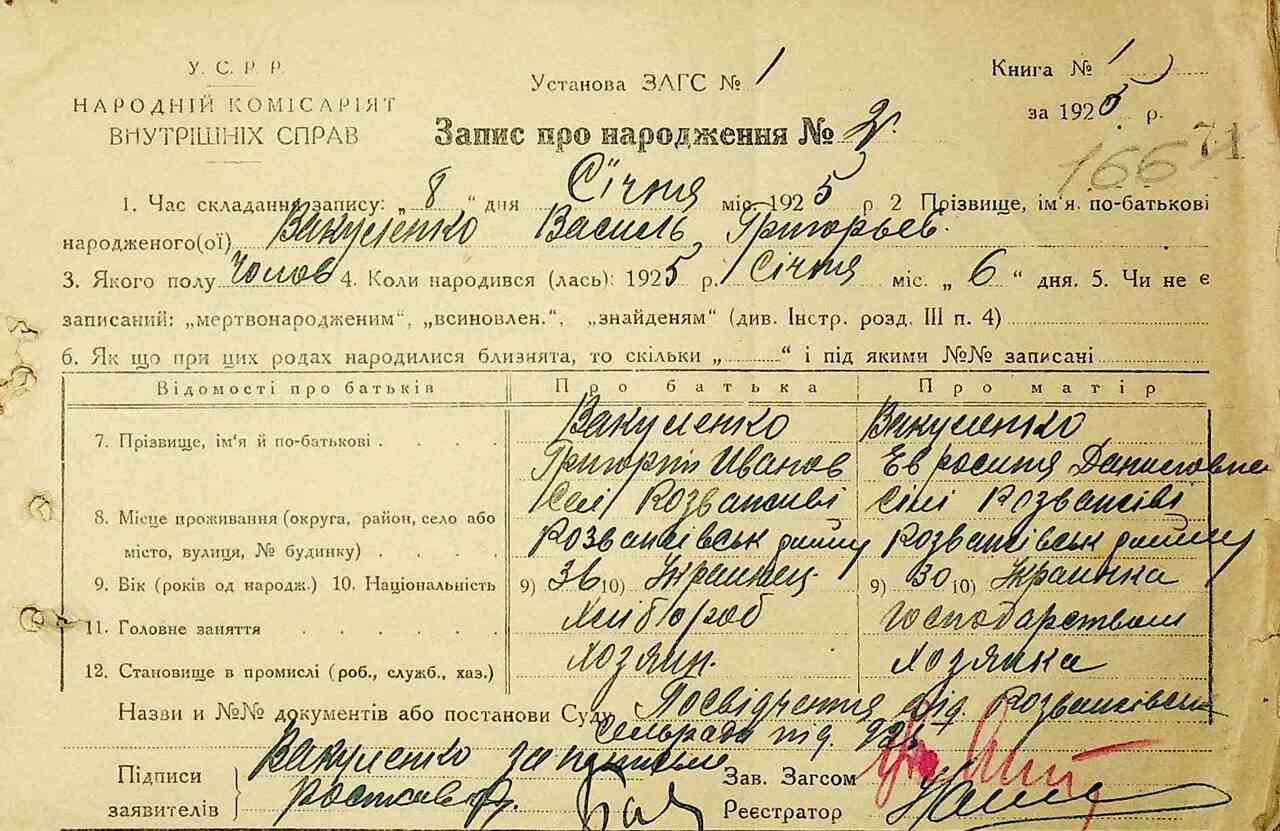 У. С. Р. Р.
НАРОДНІЙ КОМІСАРІЯТ
ВНУТРІШНІХ СПРАВ
Установа ЗАГС № 1
Книга № 1
за 1925 р.
Запис про народження № 2.
71
166
1. Час складання запису: „ 8 " дня Січня міс. 1925 р 2 Прізвище, ім'я. по-батькові
народженого(ої) Вакуленко Василь Григорьев.
3. Якого полу Чолов 4. Коли народився (лась): 1925 р. Січня міс. „ 6 " дня. 5. Чи не є
записаний: „мертвонародженим", „всиновлен.", „знайденям" (див. Інстр. розд. III п. 4)
6. Як що при цих родах народилися близнята, то скільки „ " і під якими №№ записані
Відомості про батьків Про батька Про матір
7. Прізвище, ім'я й по-батькові Вакуленко Вакуленко
Григорій Иванов Евросиния Даниловна
Селі Розважеві Сілі Розважіві
8. Місце проживання (округа, район, село або
місто, вулиця, № будинку) Розважівськ району Розважівськ району
9. Вік (років од народж.) 10. Національність 9) 36 10) Украинец. 9) 30 10) Украинка
11. Головне заняття Хлібороб Господарством
12. Становище в промислі (роб., служб., хаз.) Хозяин. Хозяйка
Назви и №№ документів або постанови Суду Посвідчення від Розважівськ
Сельради під.
Підписи
заявителів
Вакуленко
Зав. Загсом
Реєстратор